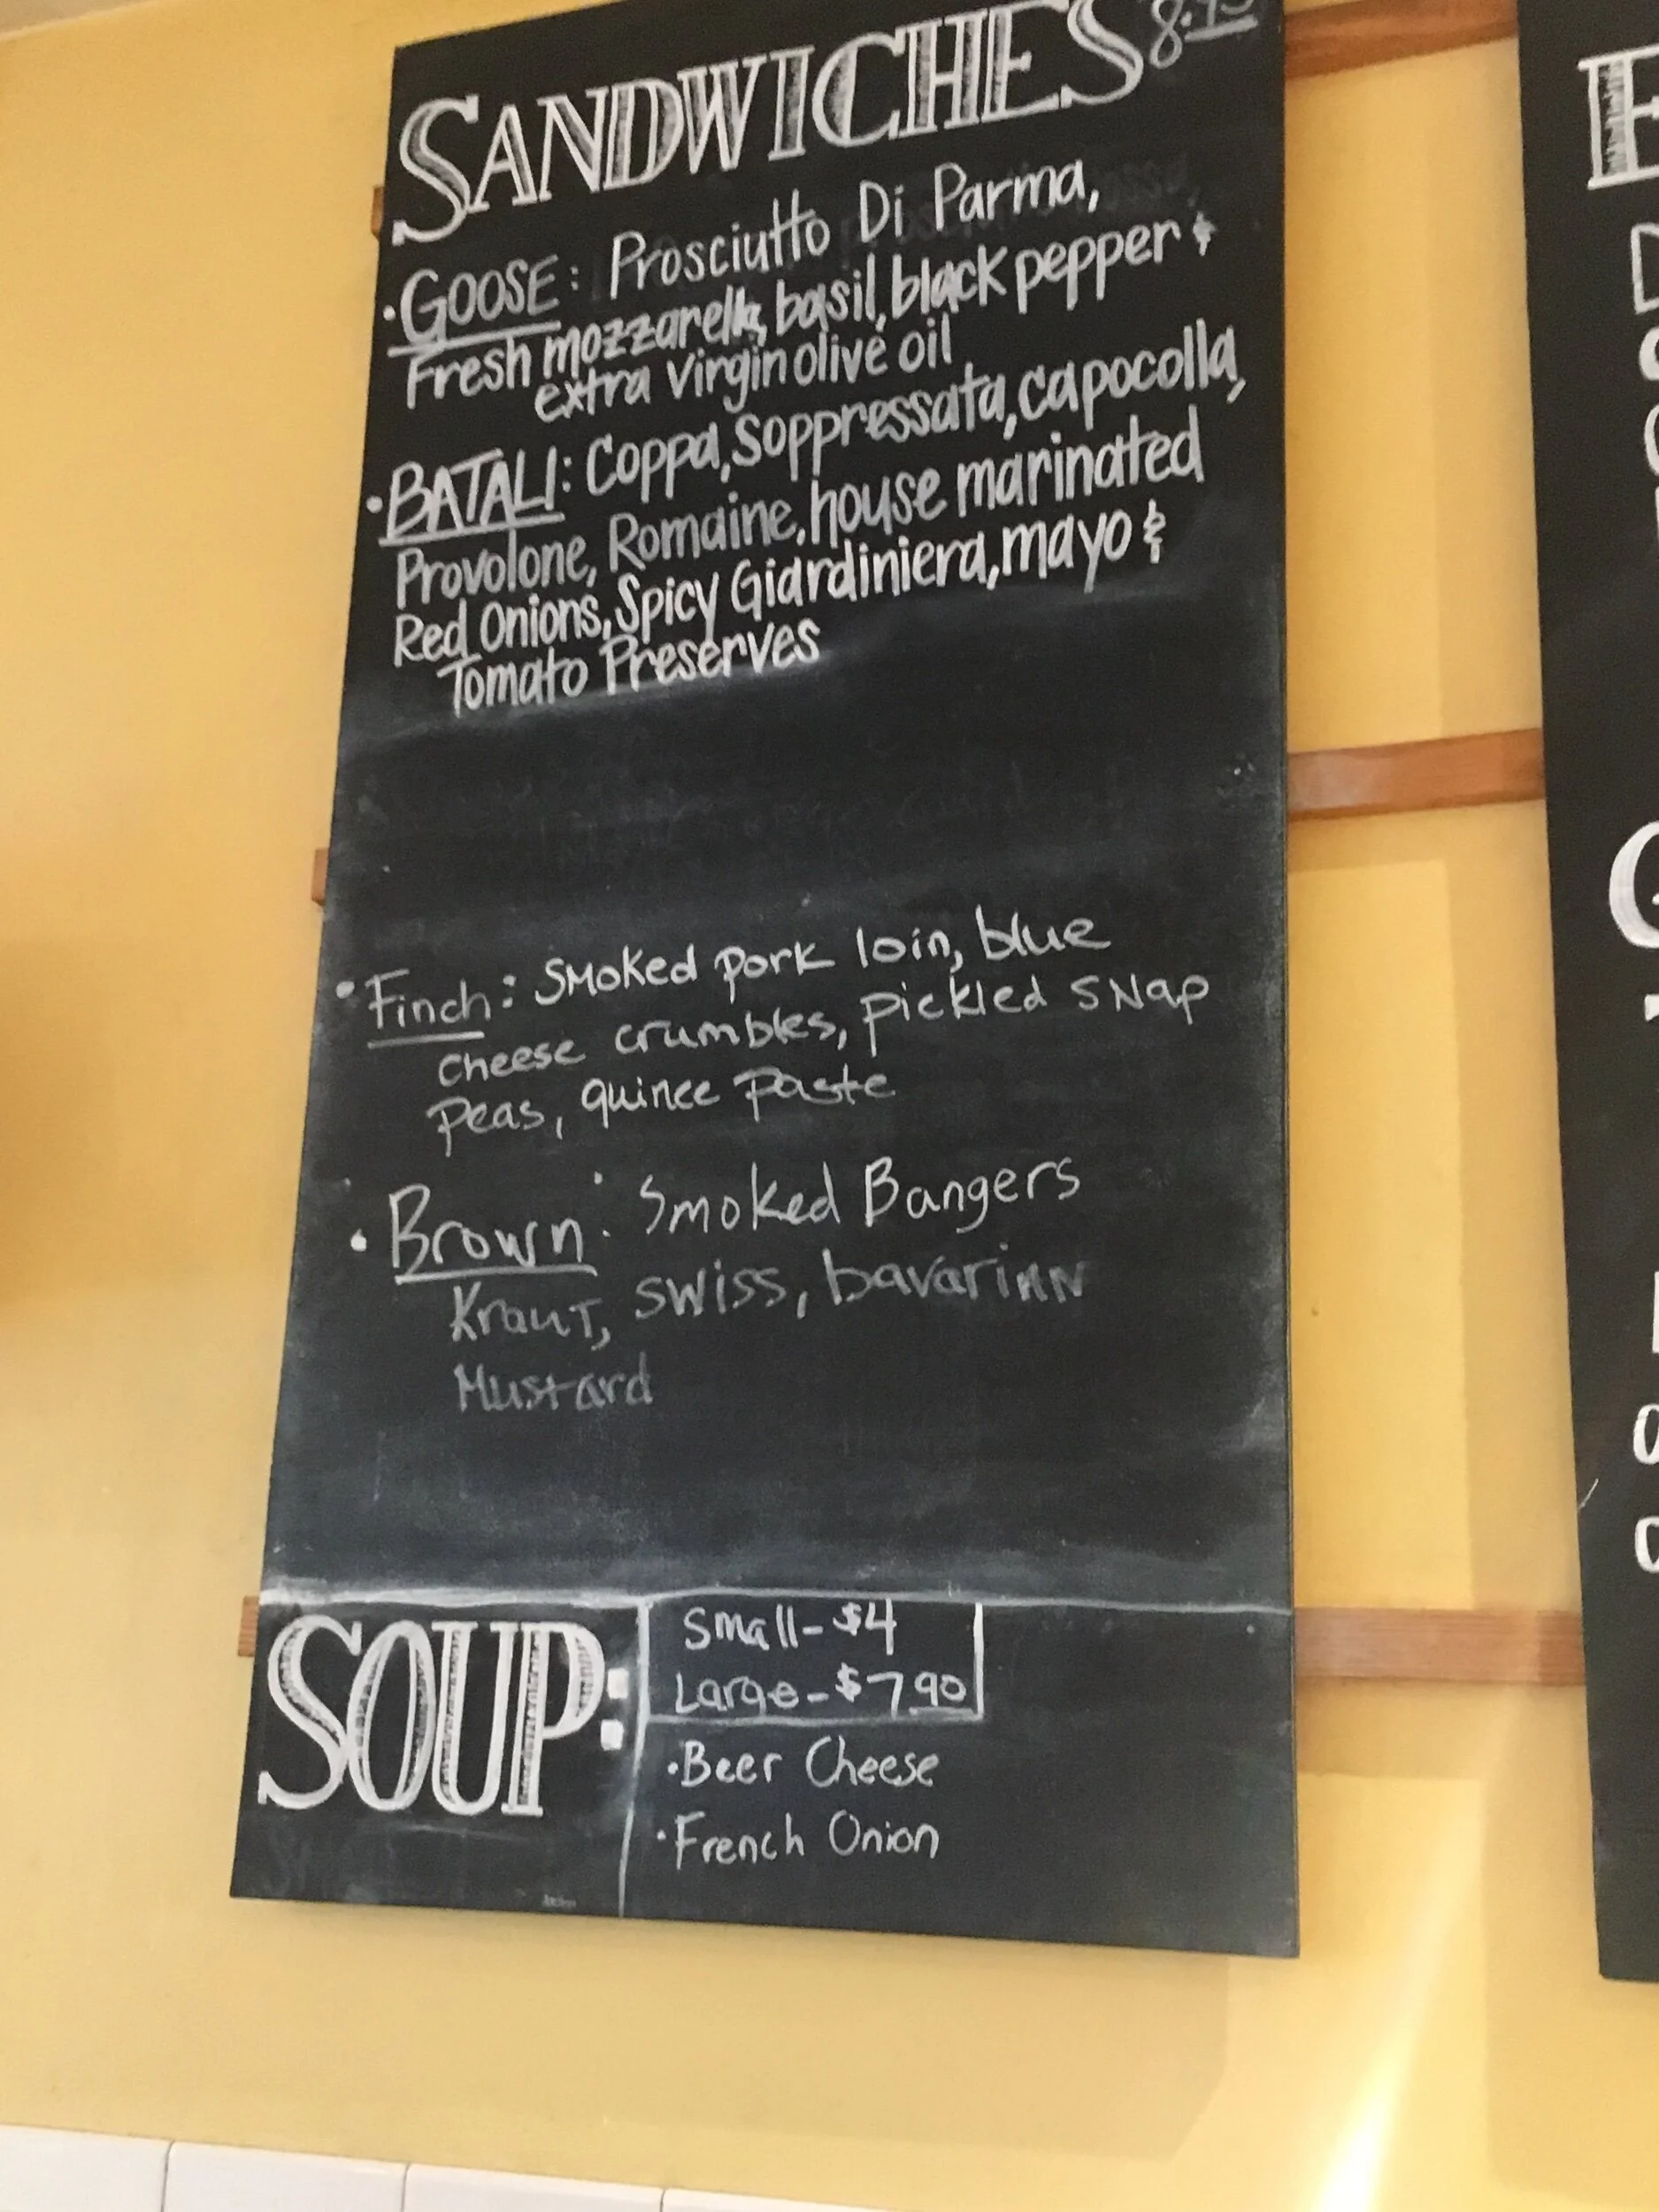 SANDWICHES
• GOOSE: Prosciutto Di Parma,
Fresh mozzarella, basil, black pepper &
extra virgin olive oil
• BATALI: Coppa, Soppressata, capocolla,
Provolone, Romaine, house marinated
Red Onions, Spicy Giardiniera, mayo &
Tomato Preserves
• Finch: Smoked pork loin, blue
cheese crumbles, pickled snap
peas, quince paste
• Brown: Smoked Bangers
Kraut, swiss, bavarian
Mustard
SOUP:
Small- $4
Large- $7.90
• Beer Cheese
• French Onion